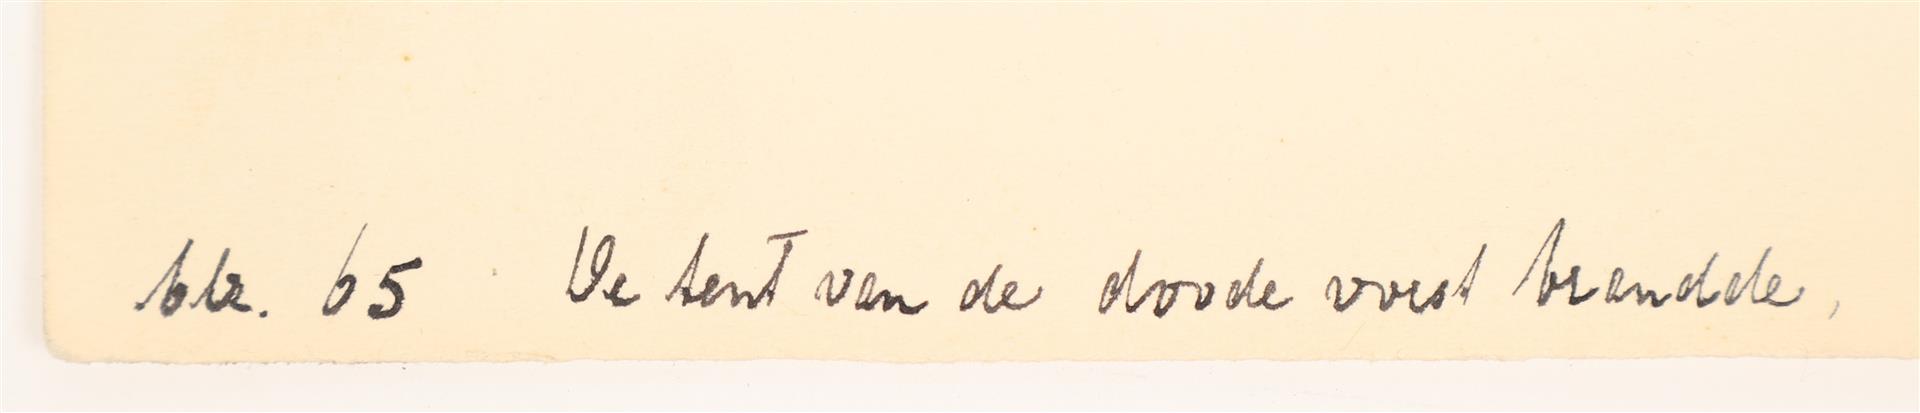 blz. 65 De tent van de doode vorst brandde,